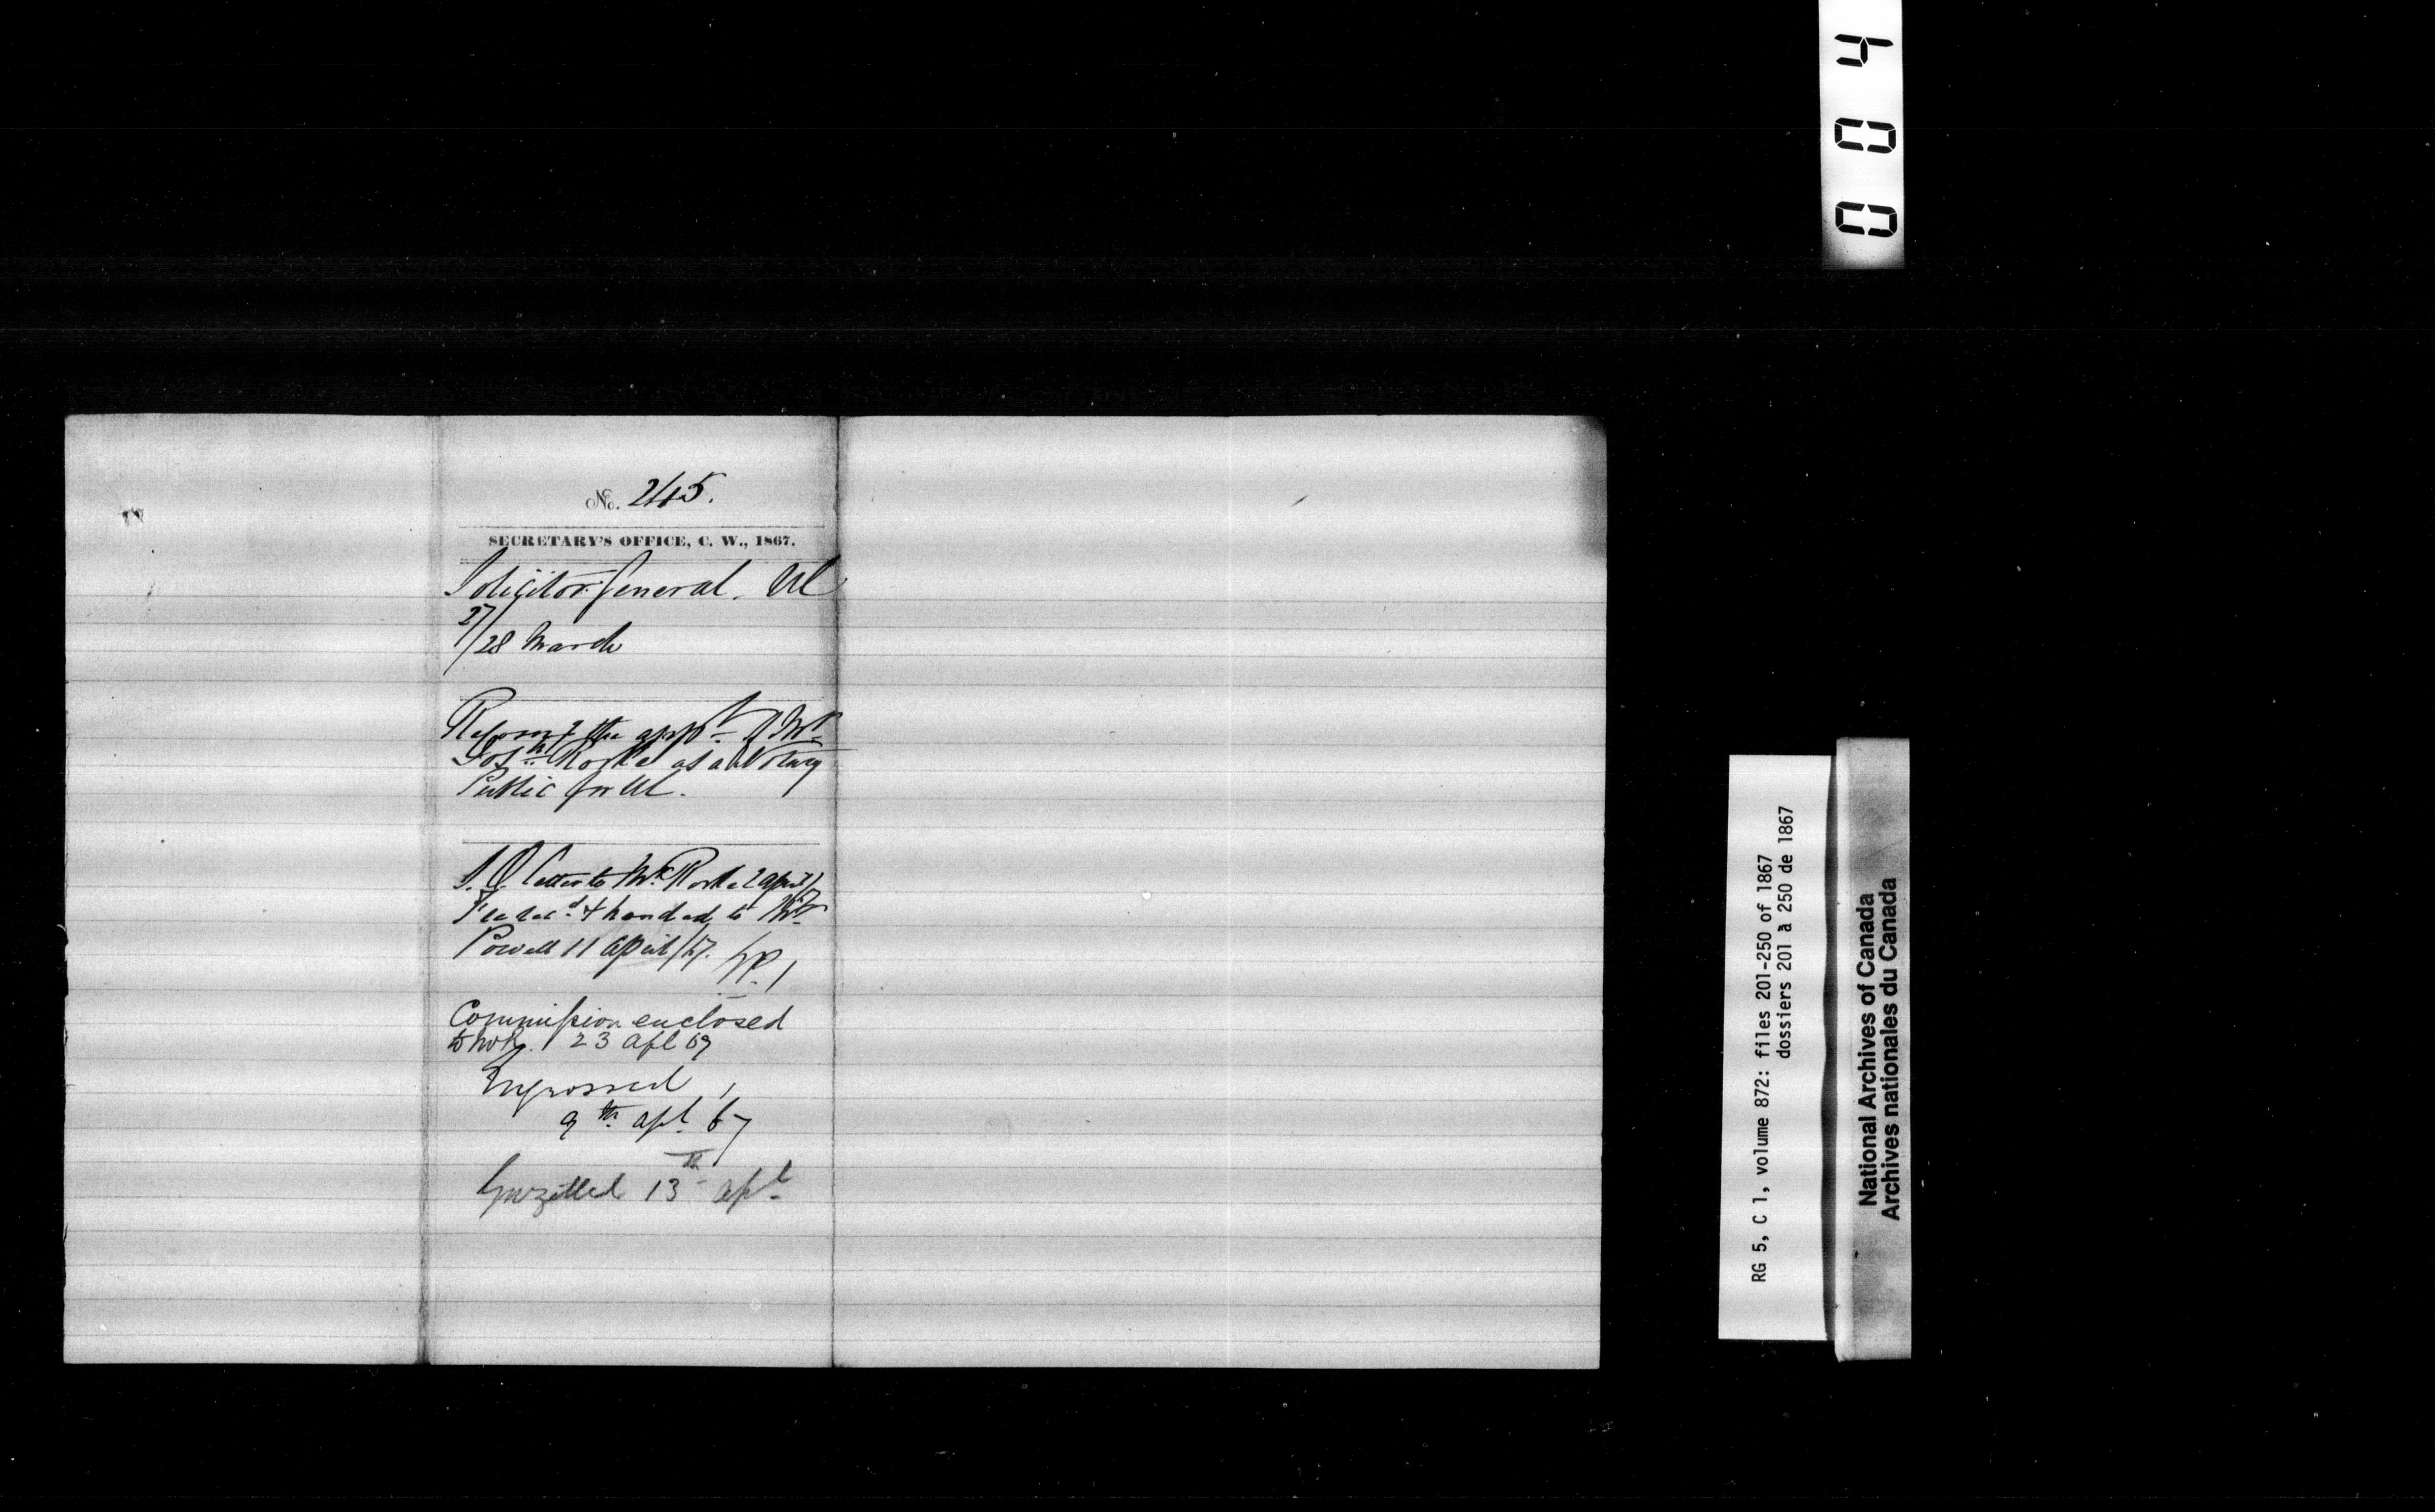 No. 245.
SECRETARY'S OFFICE, C. W., 1867.
Solicitor General. UC
27/28 March
Recomd the appt of Mr
Josh Rorke as a Notary
Public for UC.
S.O. Letter to Mr Rorke 2 April/67
Fee recd & handed to Mr
Powell 11 April/67.
Commission enclosed
to Mr R. 23 Apl 67
Engrossed
9th apl. 67
Gazetted 13th apl
0 0 4
RG 5, C 1, volume 872: files 201-250 of 1867
dossiers 201 à 250 de 1867
National Archives of Canada
Archives nationales du Canada